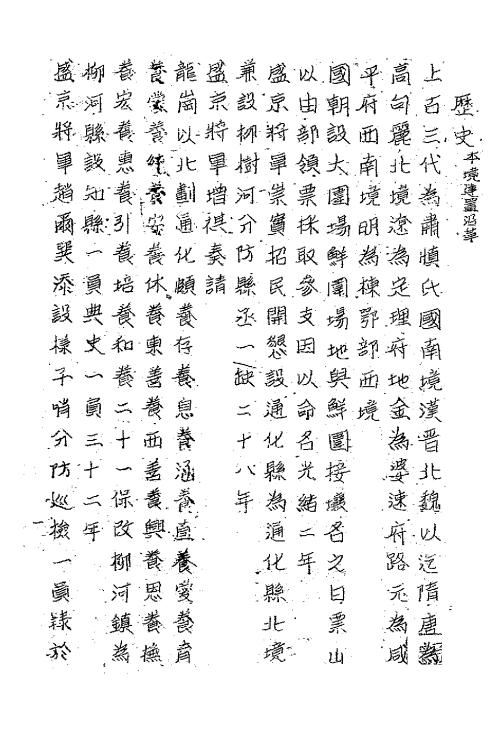 歷史本境建置沿革
上古三代為肅慎氏國南境漢晉北魏以迄隋唐為
高句麗北境遼為定理府地金為婆速府路元為咸
平府西南境明為棟鄂部西境
國朝設大圍場鮮圍場地與鮮圖接壤名之曰票山
以由部領票採取參支因以命名光緒二年
盛京將軍崇實招民開懇設通化縣為通化縣北境
兼設柳樹河分防縣丞一缺二十八年
盛京將軍增祺奏請
龍崗以北劃通化頤養存養息養涵養直養愛養育
養棠養純養安養休養東善養西善養興養恩養撫
養宏養惠養引養培養和養二十一保改柳河鎮為
柳河縣設知縣一員典史一員三十二年
盛京將軍趙爾巽添設樣子哨分防巡檢一員隸於